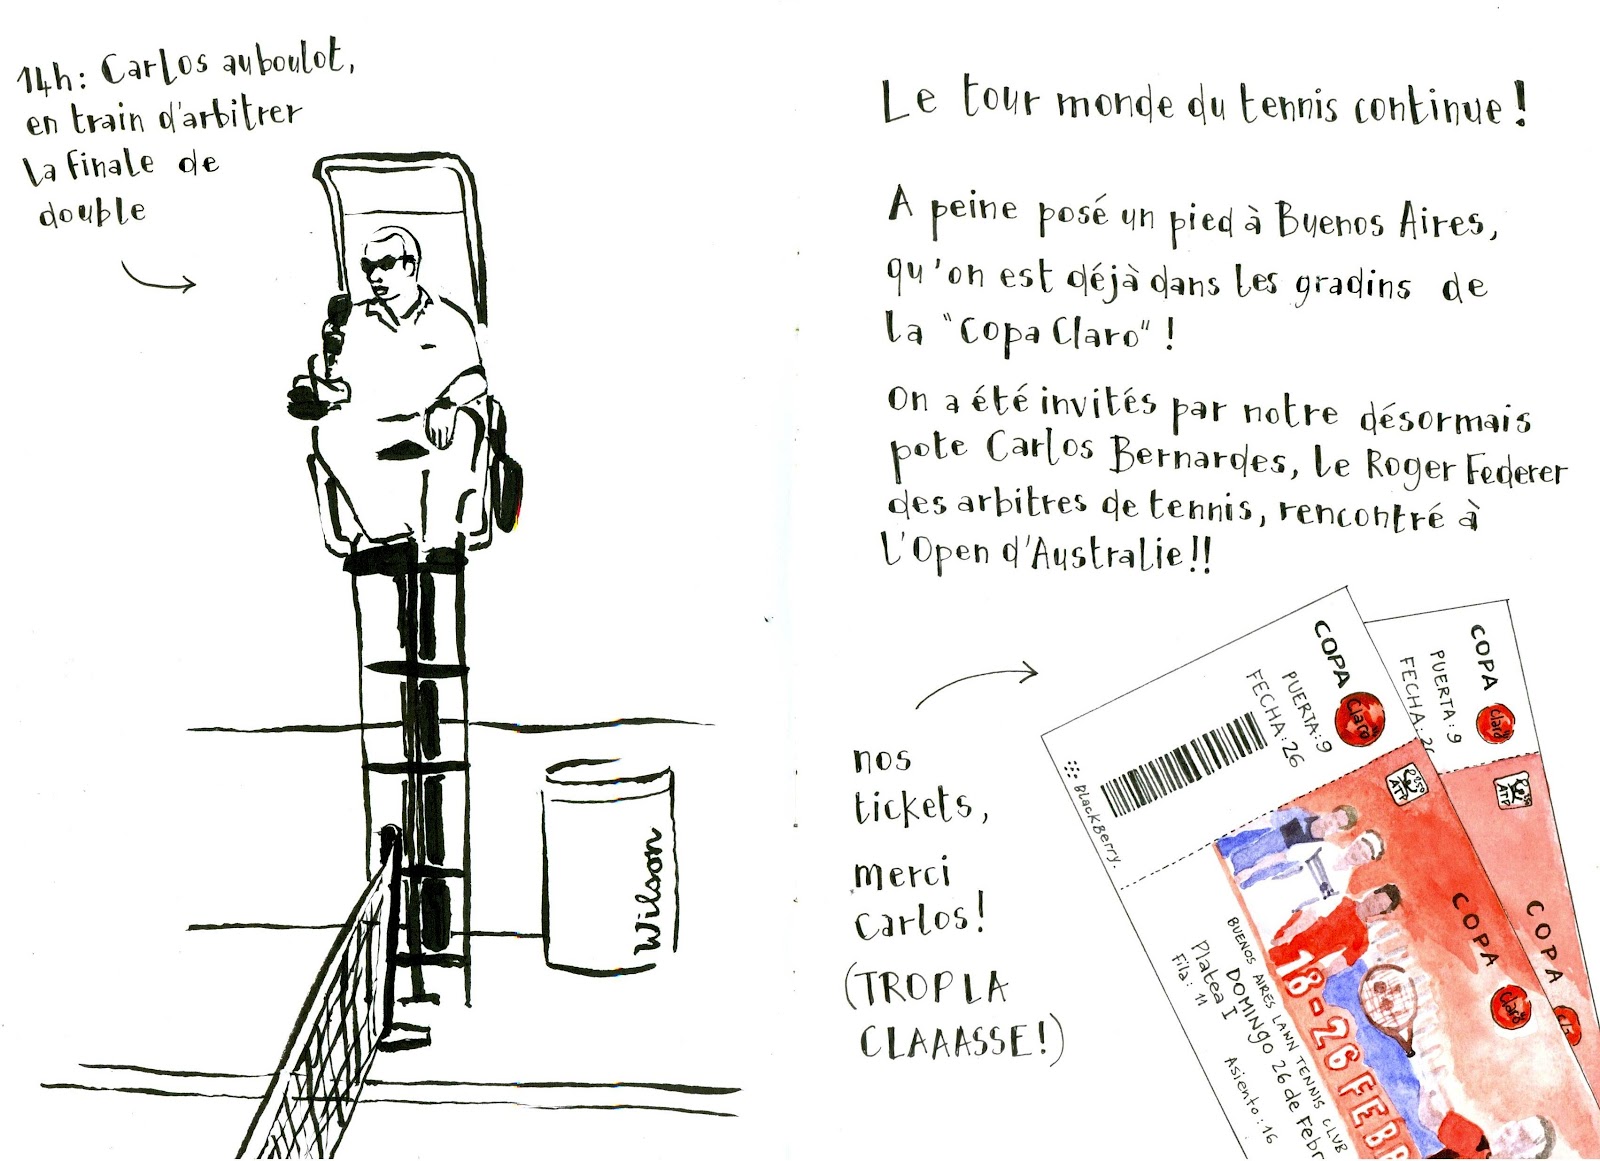 14h: Carlos au boulot,
en train d'arbitrer
la finale de
double
Wilson
Le tour monde du tennis continue!
A peine posé un pied à Buenos Aires,
qu'on est déjà dans les gradins de
la "Copa Claro"!
On a été invités par notre désormais
pote Carlos Bernardes, le Roger Federer
des arbitres de tennis, rencontré à
l'Open d'Australie!!
nos
tickets,
merci
Carlos!
(TROP LA
CLAAASSE!)
COPA
Claro
PUERTA: 9
FECHA: 26
BlackBerry.
250
ATP
COPA
Claro
18-26 FEBR
BUENOS AIRES LAWN TENNIS CLUB
DOMINGO 26 de Febr
Platea I
Fila: 11
Asiento: 16
COPA
Claro
PUERTA: 9
FECHA: 26
ATP
COPA